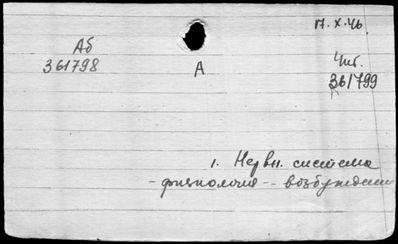 17.X.46.
Аб
361798
А
Чит.
36/799
1. Нервн. система
- физиология -- возбуждение